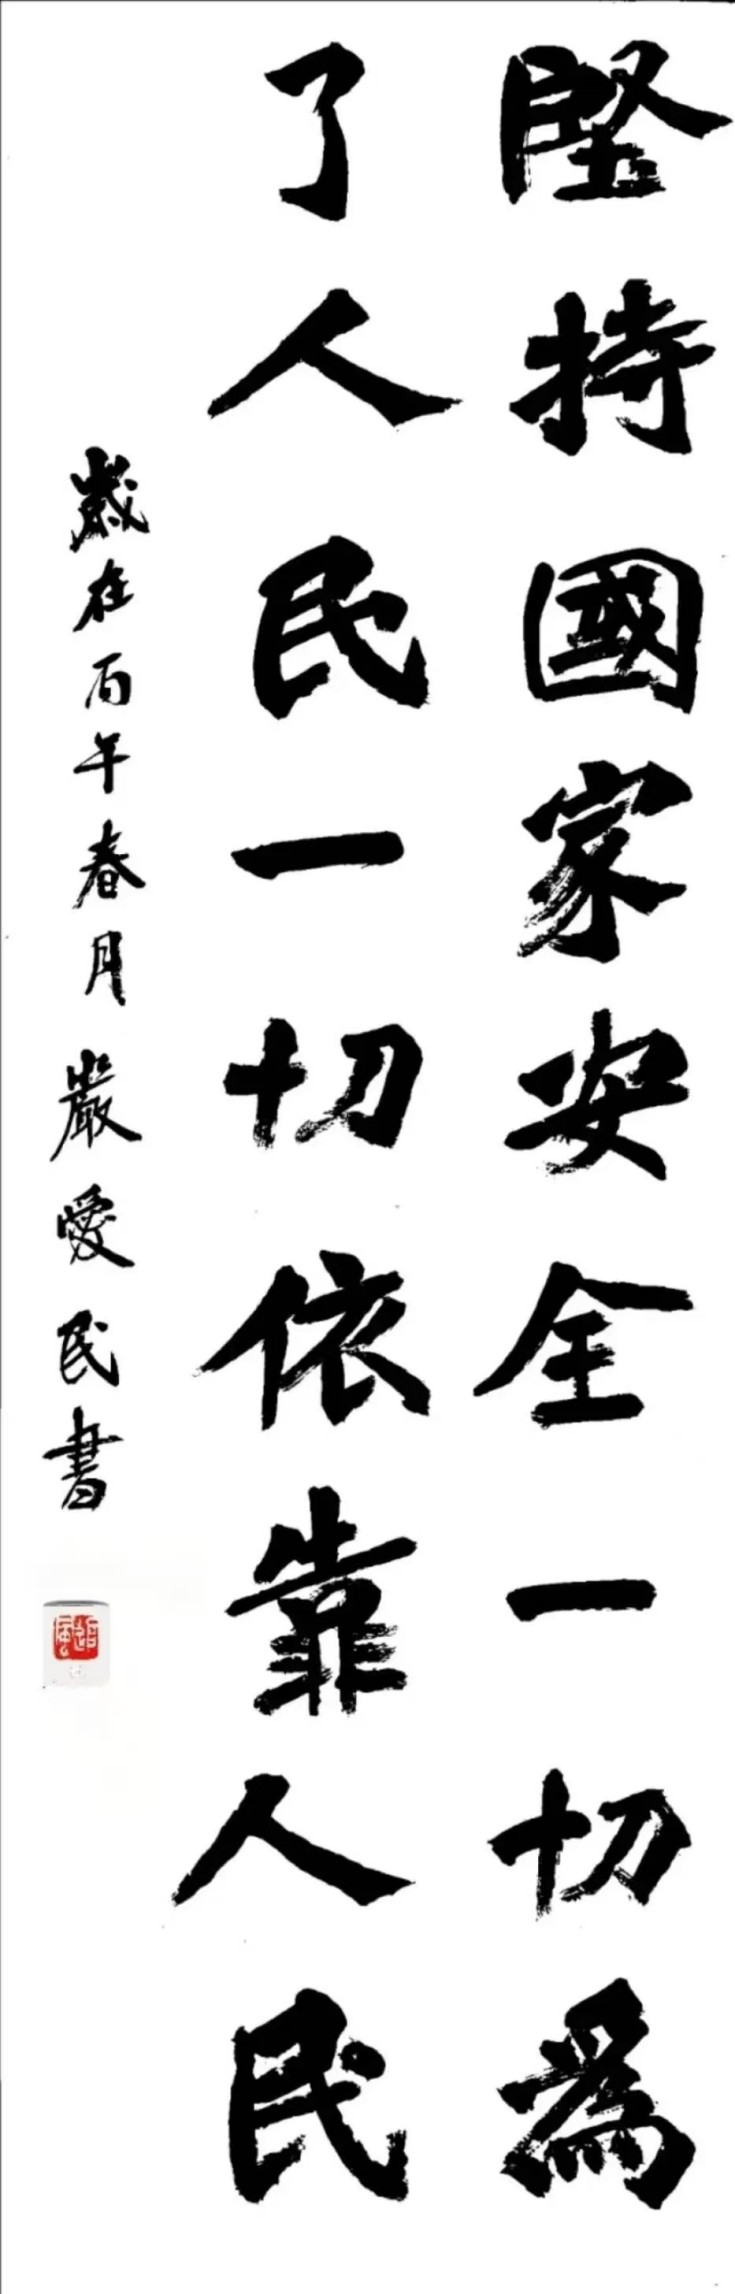 堅持國家安全一切為
了人民一切依靠人民
歲在丙午春月嚴愛民書